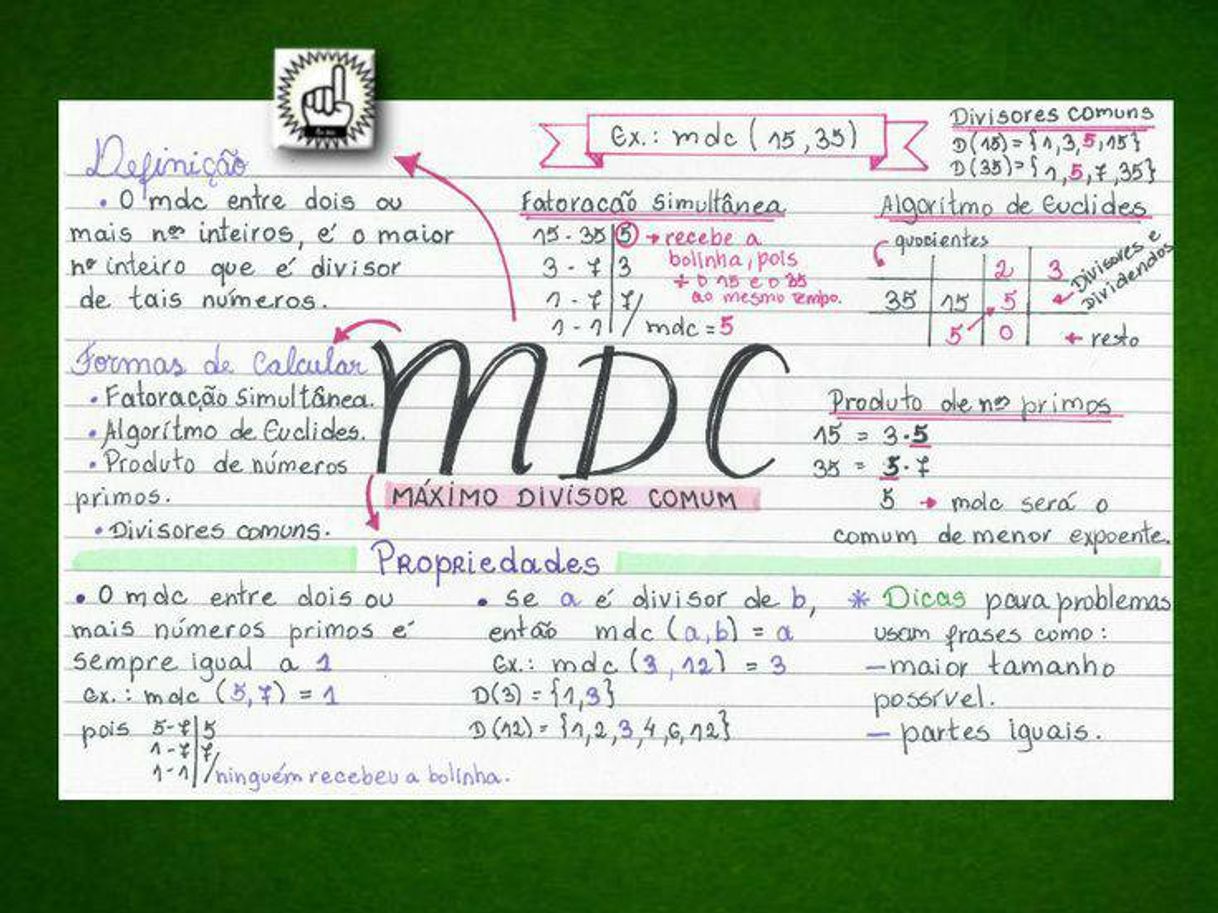 Definição
• O mdc entre dois ou
mais nºs inteiros, é o maior
nº inteiro que é divisor
de tais números.
Formas de Calcular
• Fatoração Simultânea.
• Algorítmo de Euclides.
• Produto de números
primos.
• Divisores comuns.
MDC
MÁXIMO DIVISOR COMUM
Ex.: mdc (15,35)
Fatoração Simultânea
15 - 35 | 5 → recebe a
bolinha, pois
3 - 7 | 3
÷ o 15 e o 35
1 - 7 | 7
ao mesmo tempo.
1 - 1 | / mdc = 5
Divisores comuns
D(15) = {1,3,5,15}
D(35) = {1,5,7,35}
Algorítmo de Euclides
quocientes
Divisores e
dividendos
2 3
35 15 5
5 0 ← resto
Produto de nºs primos
15 = 3·5
35 = 5·7
5 → mdc será o
comum de menor expoente.
Propriedades
• O mdc entre dois ou
mais números primos é
sempre igual a 1
ex.: mdc (5,7) = 1
pois 5-7 | 5
1-7 | 7
1-1 | / ninguém recebeu a bolinha.
• Se a é divisor de b,
então mdc (a,b) = a
Ex.: mdc (3,12) = 3
D(3) = {1,3}
D(12) = {1,2,3,4,6,12}
* Dicas para problemas
usam frases como:
— maior tamanho
possível.
— partes iguais.